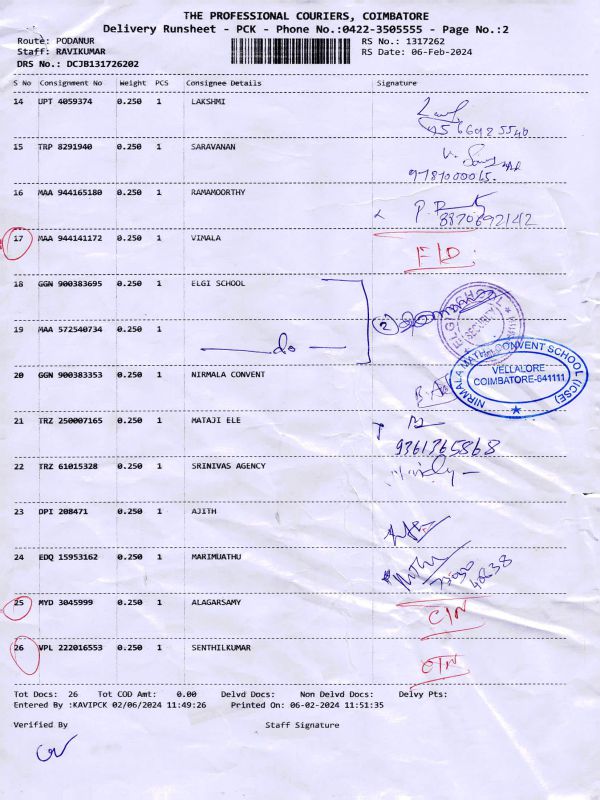 THE PROFESSIONAL COURIERS, COIMBATORE
Delivery Runsheet - PCK - Phone No.:0422-3505555 - Page No.:2
Route: PODANUR RS No.: 1317262
Staff: RAVIKUMAR RS Date: 06-Feb-2024
DRS No.: DCJB131726202
S No Consignment No Weight PCS Consignee Details Signature
14 UPT 4059374 0.250 1 LAKSHMI
15 TRP 8291940 0.250 1 SARAVANAN
16 MAA 944165180 0.250 1 RAMAMOORTHY
17 MAA 944141172 0.250 1 VIMALA
18 GGN 900383695 0.250 1 ELGI SCHOOL
19 MAA 572540734 0.250 1 do
20 GGN 900383353 0.250 1 NIRMALA CONVENT
NIRMALA MATHA CONVENT SCHOOL (ICSE)
VELLALORE
COIMBATORE-641111
21 TRZ 250007165 0.250 1 MATAJI ELE
9361365868
22 TRZ 61015328 0.250 1 SRINIVAS AGENCY
23 DPI 208471 0.250 1 AJITH
24 EDQ 15953162 0.250 1 MARIMUATHU
25 MYD 3045999 0.250 1 ALAGARSAMY
26 VPL 222016553 0.250 1 SENTHILKUMAR
Tot Docs: 26 Tot COD Amt: 0.00 Delvd Docs: Non Delvd Docs: Delvy Pts:
Entered By :KAVIPCK 02/06/2024 11:49:26 Printed On: 06-02-2024 11:51:35
Verified By Staff Signature